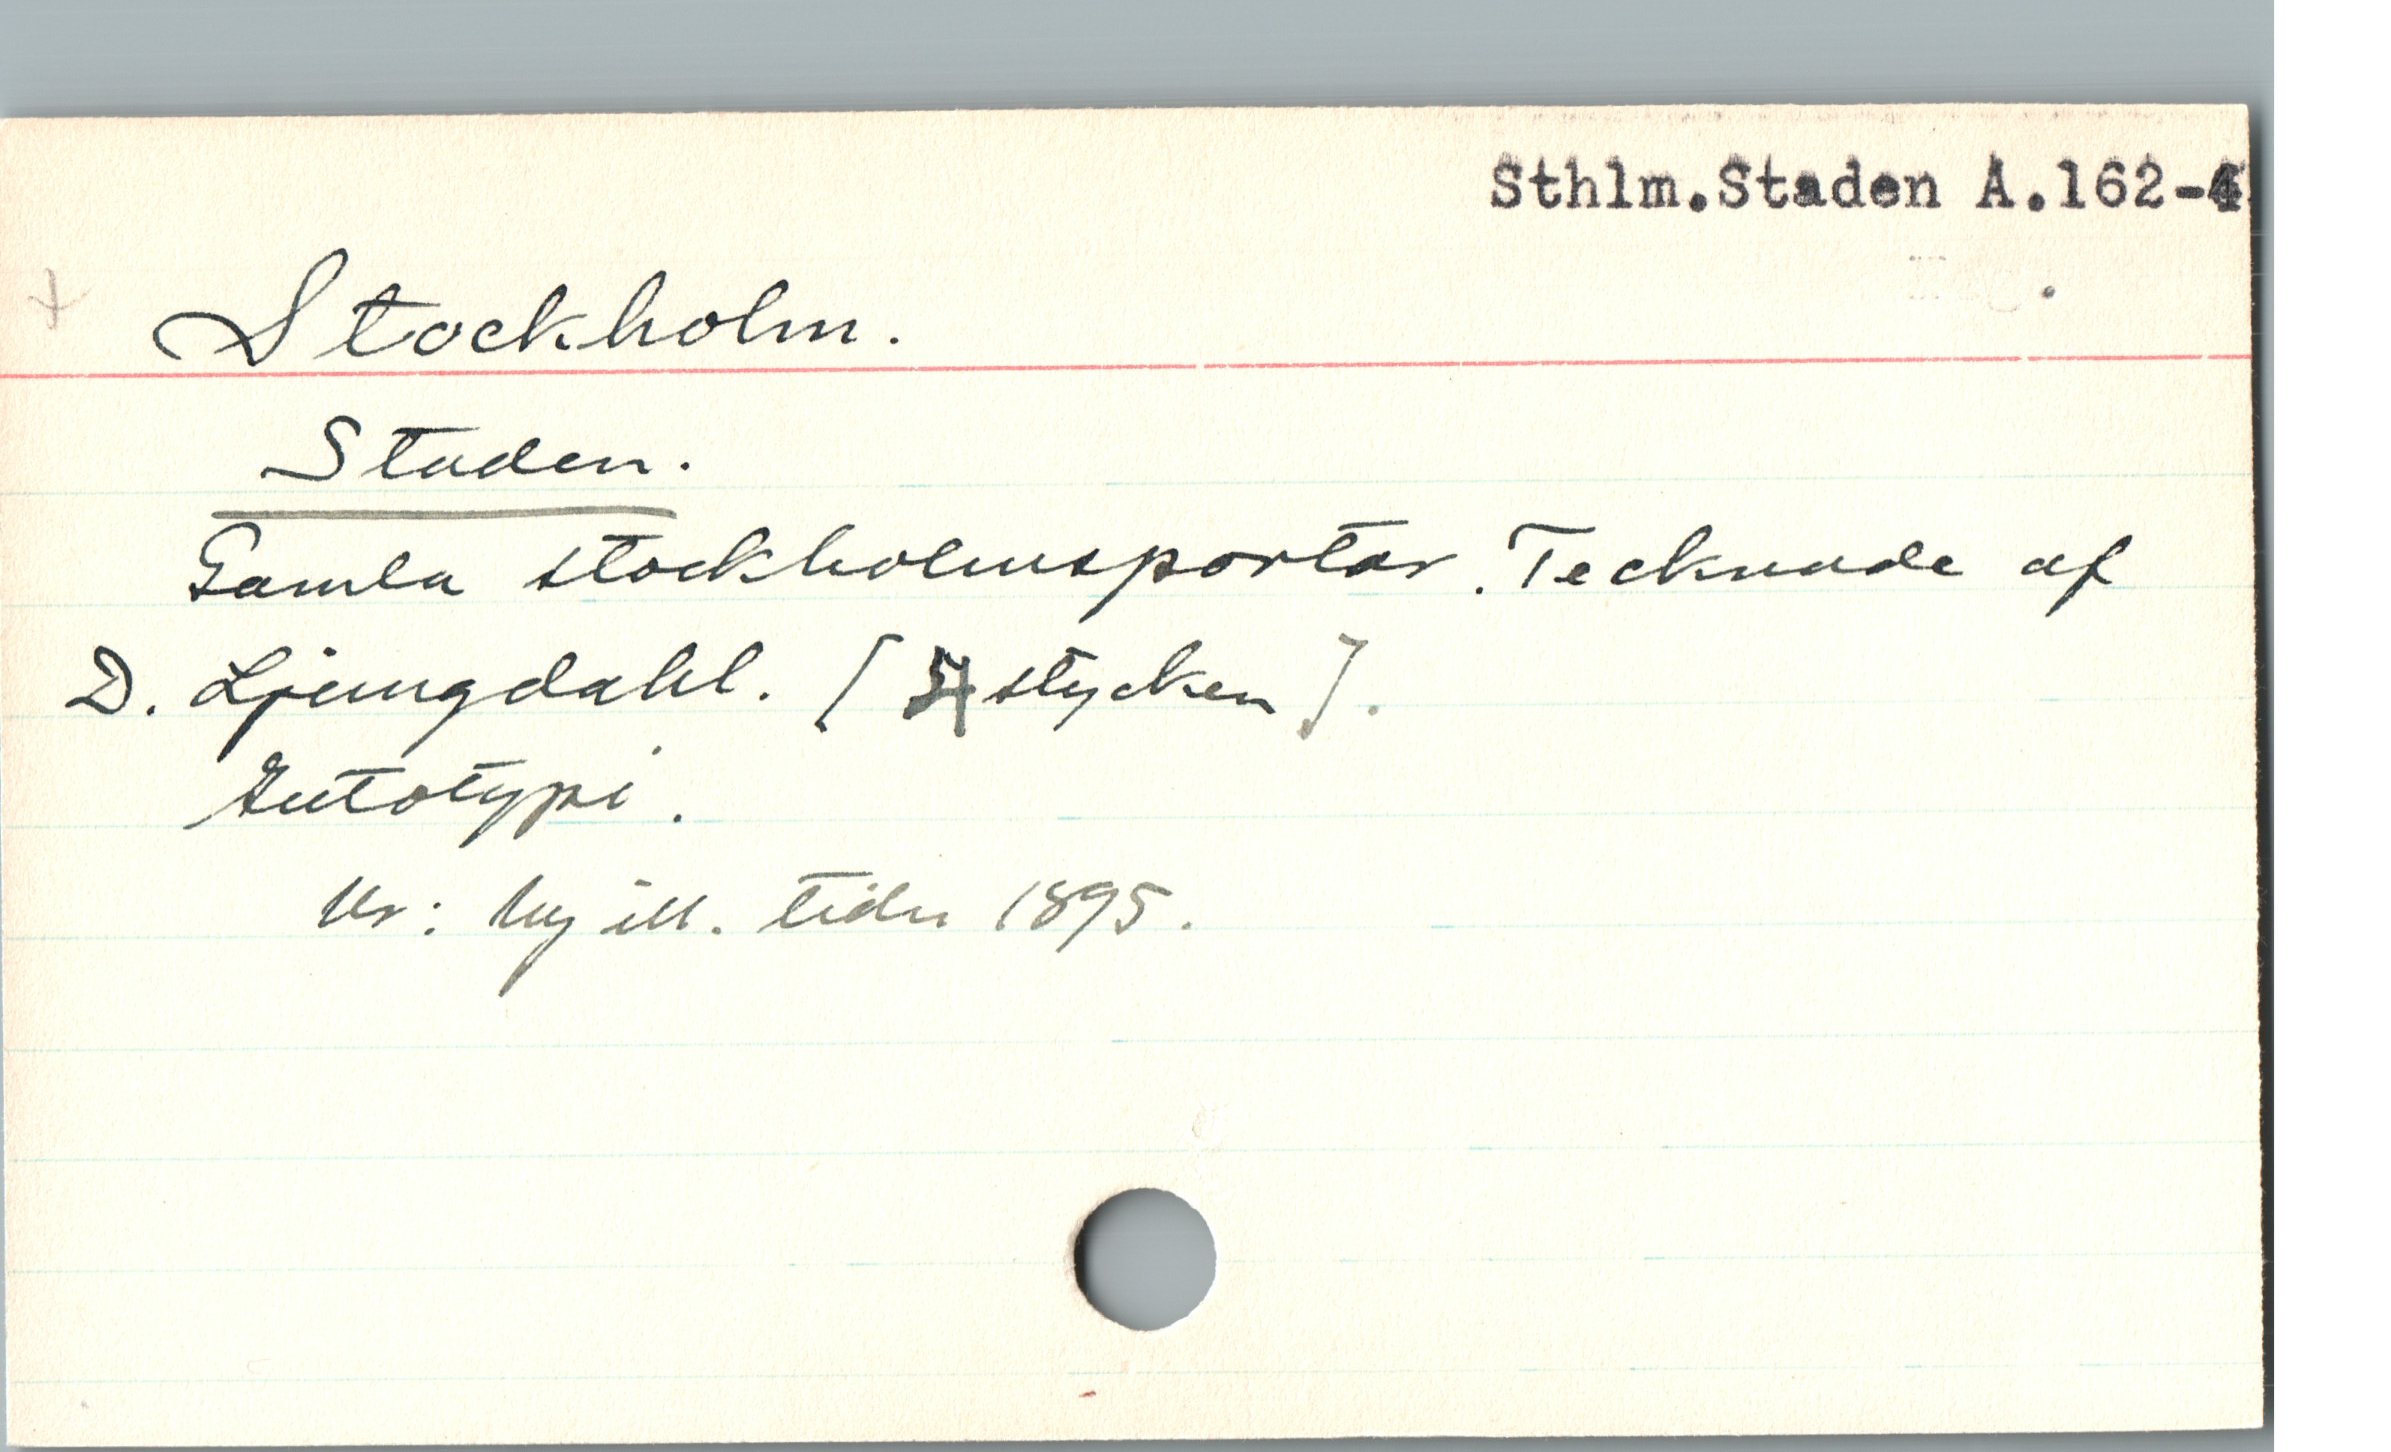 Sthlm.Staden A.162-4
+ Stockholm.
Staden.
Gamla stockholmsportar. Tecknade af
D. Ljungdahl. [4 stycken].
Autotypi.
Ur: Ny ill. tidn 1895.